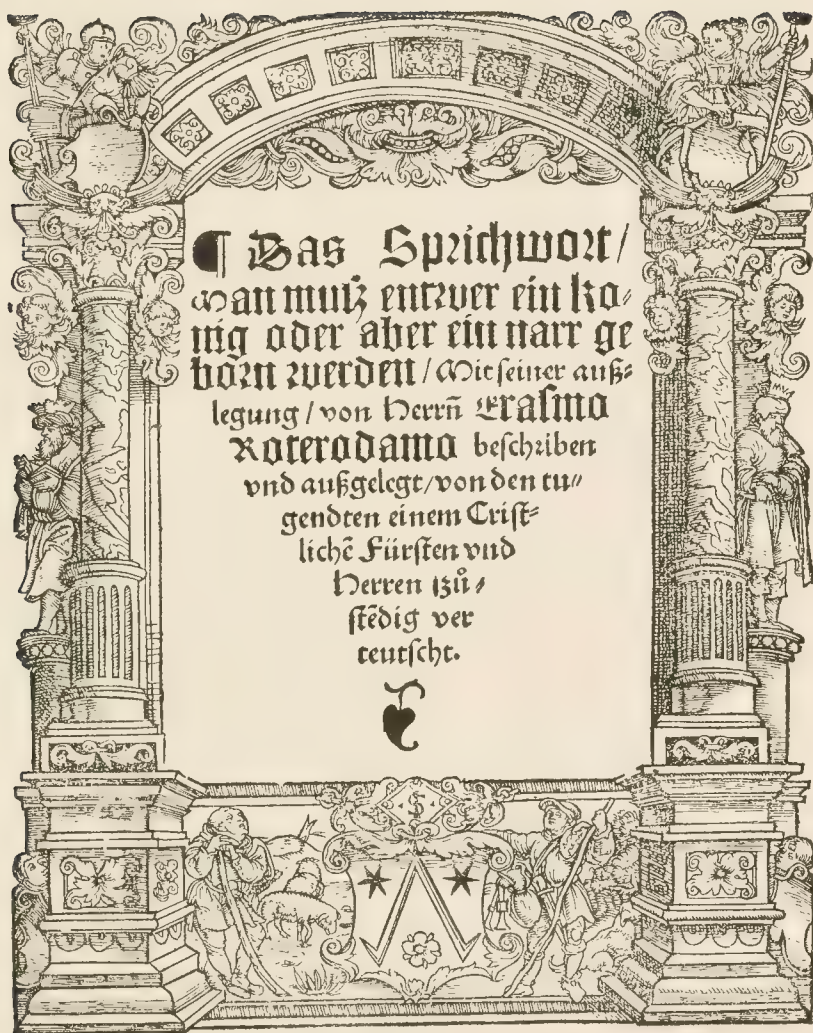 ¶ Das Sprichwort/
Man muſz entwer ein ko⸗
nig oder aber ein narr ge
born werden / Mit ſeiner auß⸗
legung / von Herrñ Eraſmo
Roterodamo beſchriben
vnd außgelegt/von den tu⸗
gendten einem Criſt⸗
lichē Fürſten vnd
Herren zů⸗
ſtēdig ver
teutſcht.